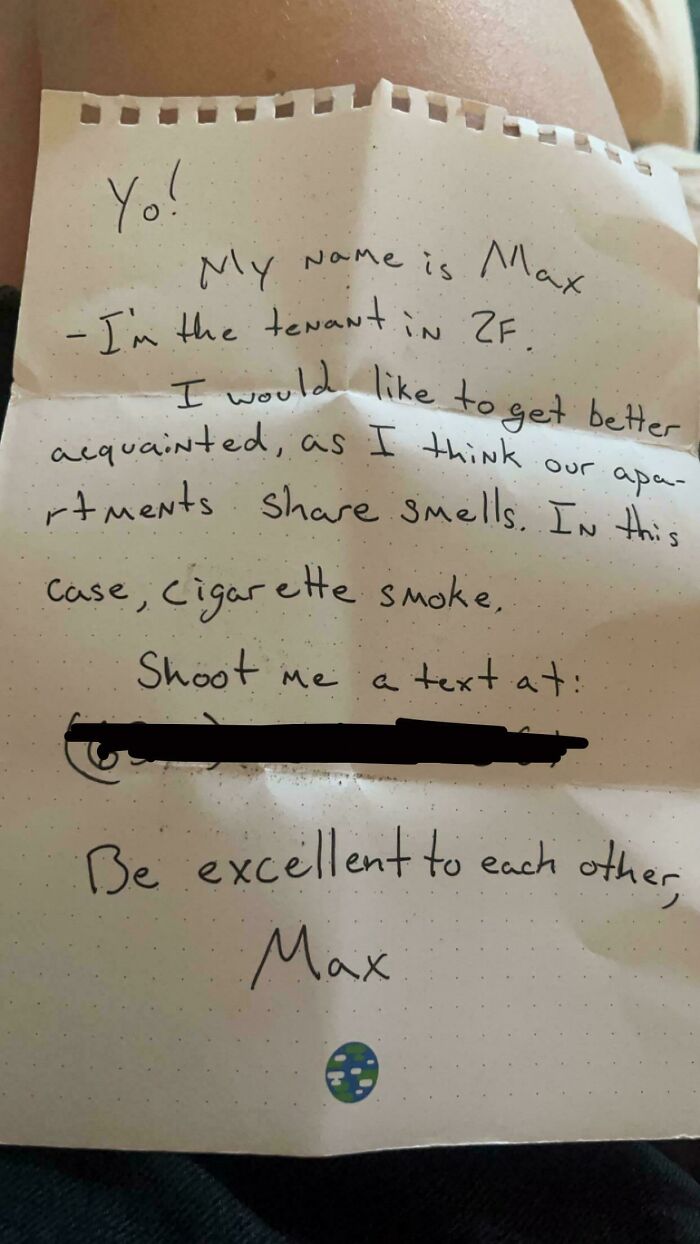 Yo!
My name is Max
- I'm the tenant in 2F.
I would like to get better
acquainted, as I think our apa-
rtments share smells. In this
case, cigarette smoke.
Shoot me a text at:
Be excellent to each other,
Max